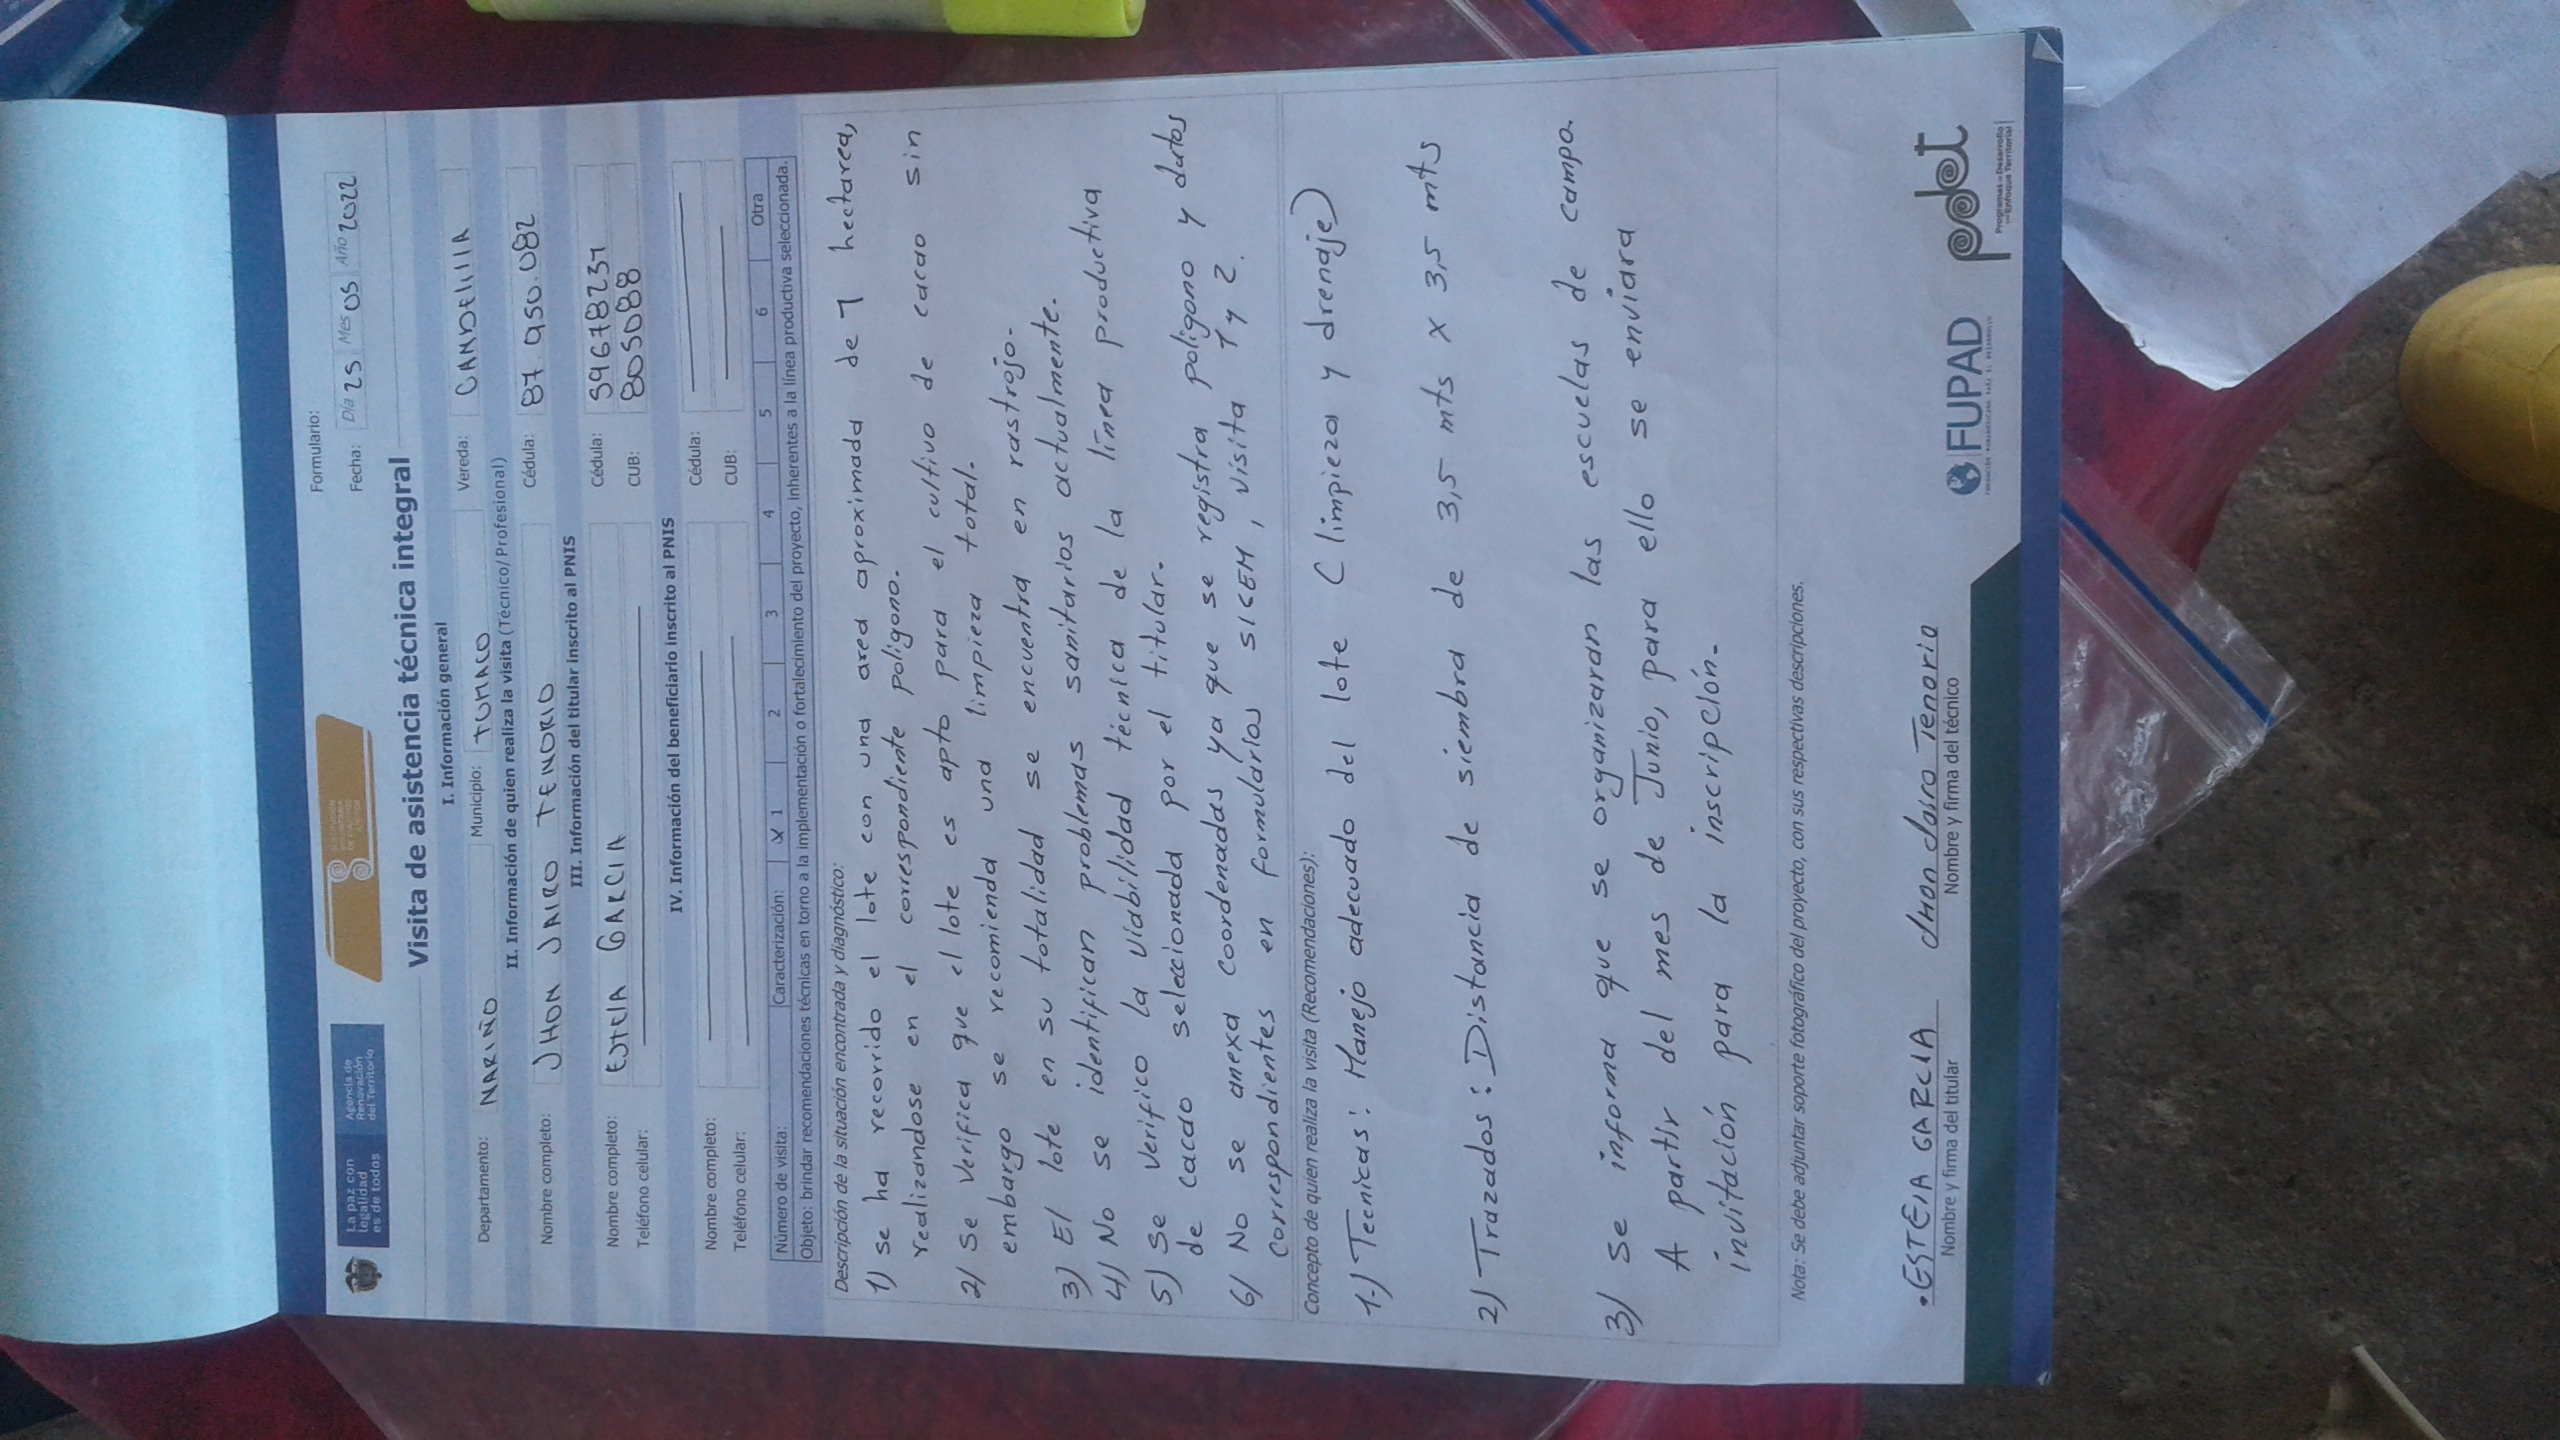 La paz con
legalidad
es de todos
Agencia de
Renovación
del Territorio
Formulario:
Fecha: Día 25 Mes 05 Año 2022
Visita de asistencia técnica integral
I. Información general
Departamento: NARIÑO Municipio: TUMACO Vereda: CANDELILLA
II. Información de quien realiza la visita (Técnico/Profesional)
Nombre completo: JHON JAIRO TENORIO Cédula: 87.950.082
III. Información del titular inscrito al PNIS
Nombre completo: ESTELA GARCIA Cédula: 59678237
Teléfono celular: CUB: 805088
IV. Información del beneficiario inscrito al PNIS
Nombre completo: Cédula:
Teléfono celular: CUB:
Número de visita: Caracterización: X 1 2 3 4 5 6 Otra
Objeto: brindar recomendaciones técnicas en torno a la implementación o fortalecimiento del proyecto, inherentes a la línea productiva seleccionada.
Descripción de la situación encontrada y diagnóstico:
1) se ha recorrido el lote con una area aproximada de 1 hectarea,
realizandose en el correspondiente poligono.
2) Se verifica que el lote es apto para el cultivo de cacao sin
embargo se recomienda una limpieza total.
3) El lote en su totalidad se encuentra en rastrojo.
4) No se identifican problemas sanitarios actualmente.
5) Se verifico la viabilidad técnica de la línea productiva
de cacao seleccionada por el titular.
6) No se anexa coordenadas ya que se registra poligono y datos
correspondientes en formularios SICEM, visita 1 y 2.
Concepto de quien realiza la visita (Recomendaciones):
1.) Tecnicas: Manejo adecuado del lote (limpieza y drenaje)
2) Trazados: Distancia de siembra de 3,5 mts x 3,5 mts
3) Se informa que se organizaran las escuelas de campo.
A partir del mes de Junio, para ello se enviara
invitación para la inscripción.
Nota: Se debe adjuntar soporte fotográfico del proyecto, con sus respectivas descripciones.
ESTELA GARCIA Jhon Jairo Tenorio
Nombre y firma del titular Nombre y firma del técnico
FUPAD
pdet
Programas de Desarrollo
con Enfoque Territorial